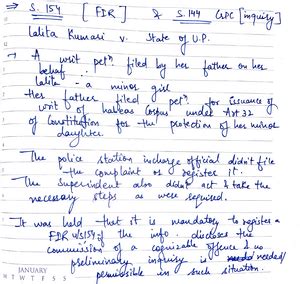 ⇒ S. 154 [FIR] & S. 144 CrPC [inquiry]
Lalita Kumari v. State of U.P.
→ A writ petn filed by her father on her
behalf.
Lalita - a minor girl
Her father filed petn for issuance of
writ of habeas corpus under Art 32
of Constitution for the protection of her minor
daughter.
The police station incharge official didn't file
the complaint or register it.
The Superindent also didn't act & take the
necessary steps as were required.
It was held that it is mandatory to register a
FIR u/s 154 if the info. discloses the
commission of a cognizable offence & no
preliminary inquiry is needed
permissible in such situation.
JANUARY
M T W T F S S